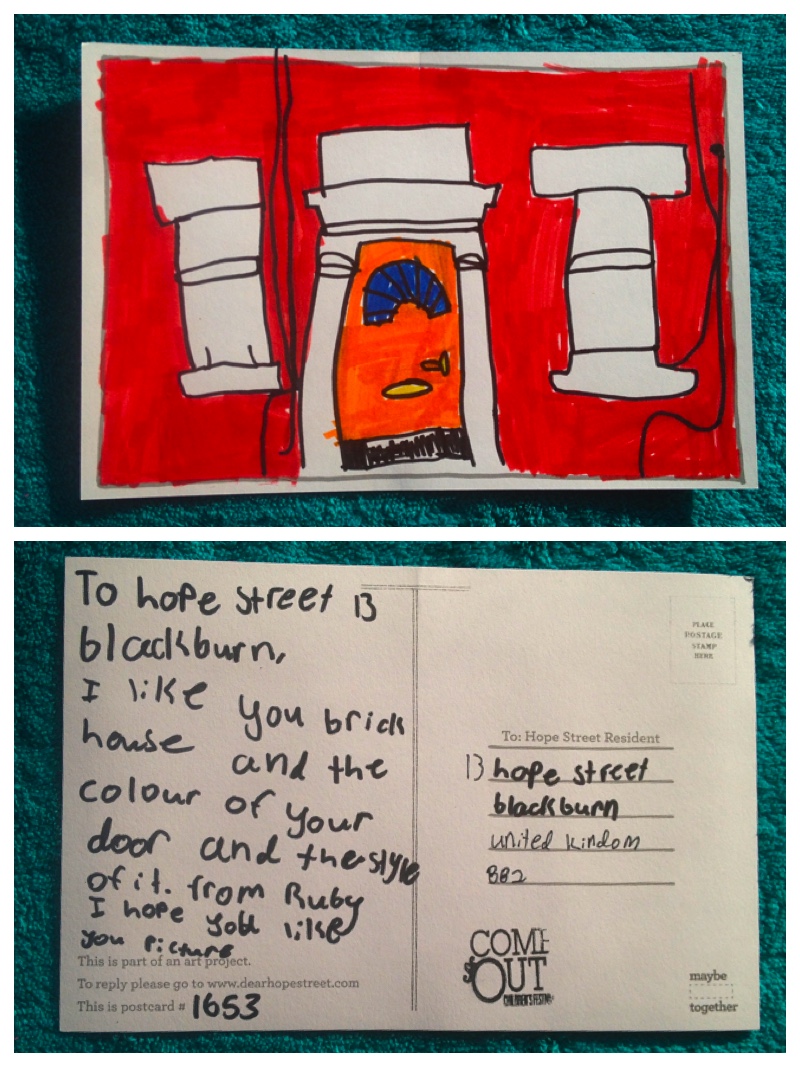 To hope street 13
blackburn,
I like you brick
house and the
colour of your
door and the style
of it. from Ruby
I hope you like
you picture
This is part of an art project.
To reply please go to www.dearhopestreet.com
This is postcard # 1653
PLACE
POSTAGE
STAMP
HERE
To: Hope Street Resident
13 hope street
blackburn
united kindom
882
COME
OUT
CHILDREN'S FESTIVAL
maybe
together